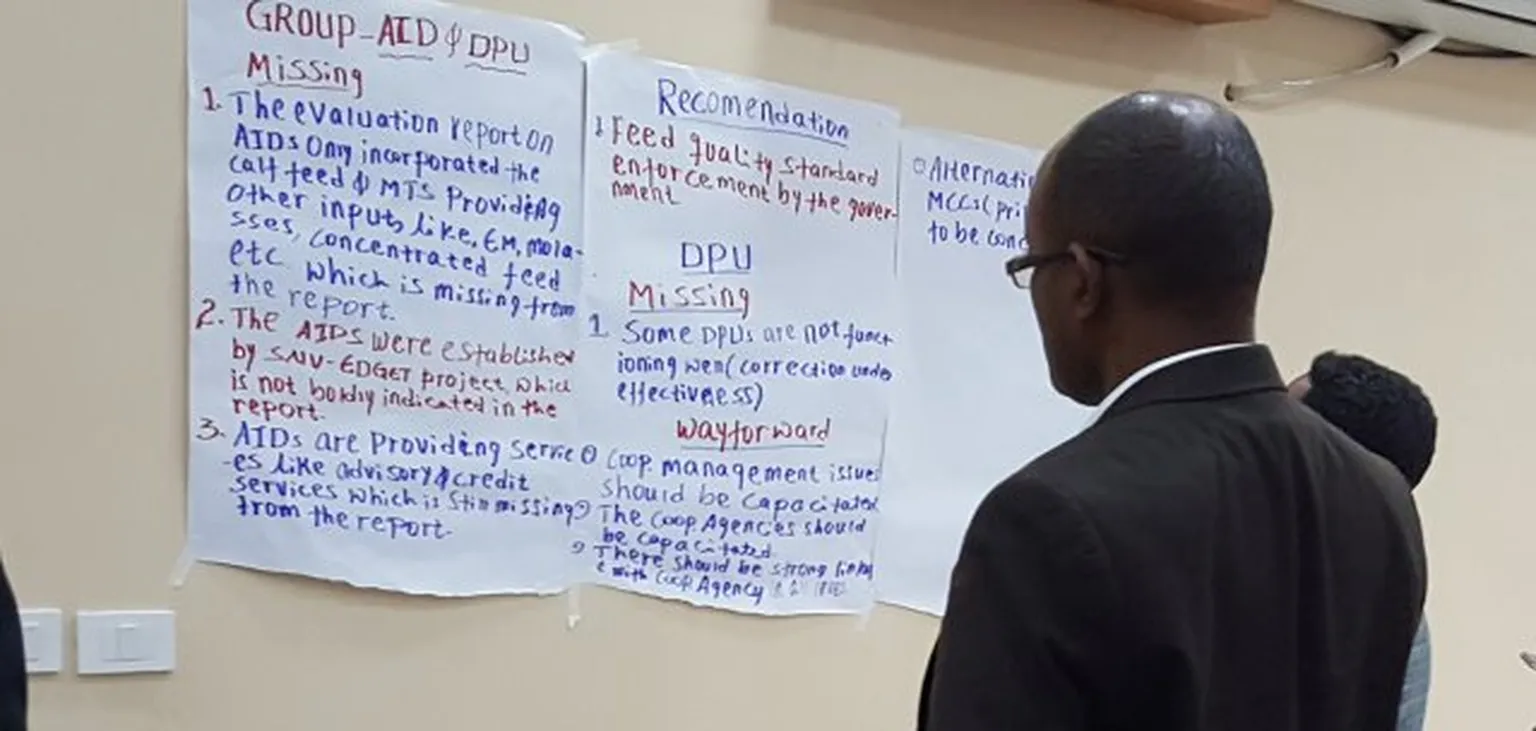 GROUP-AID & DPU
Missing
1. The evaluation report on
AIDs Only incorporated the
calf feed & MTS Providing
Other inputs like, EM, mola-
sses, concentrated feed
etc which is missing from
the report.
2. The AIDS were established
by SNV-EDGET project, which
is not boldly indicated in the
report.
3. AIDs are Providing servic
-es like advisory & credit
services which is still missing
from the report.
Recomendation
1 Feed quality standard
enforcement by the gover-
nment
DPU
Missing
1. Some DPUs are not funct
ioning well (correction under
effectiveness)
Way forward
Coop management issues
should be capacitated
The Coop Agencies should
be capacitated
There should be strong
with Coop Agency
MCCs (pri
to be